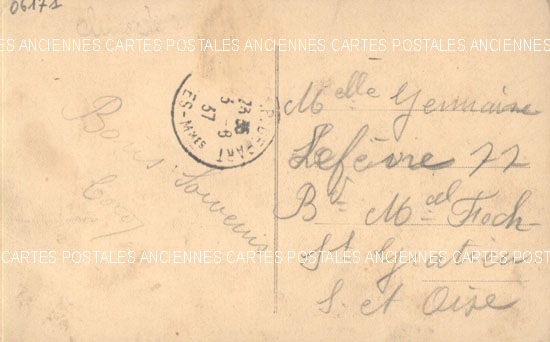 06171
ANCIENNES CARTES POSTALES ANCIENNES CARTES POSTALES ANCIENNES
Bons Souvenirs
23 35
3 - 8
37
ES-MMES
Melle Germaine
Lefèvre 77
Bt Mal Foch
St Gratien
S. et Oise
CARTES POSTALES ANCIENNES CARTES POSTALES ANCIENNES CARTES